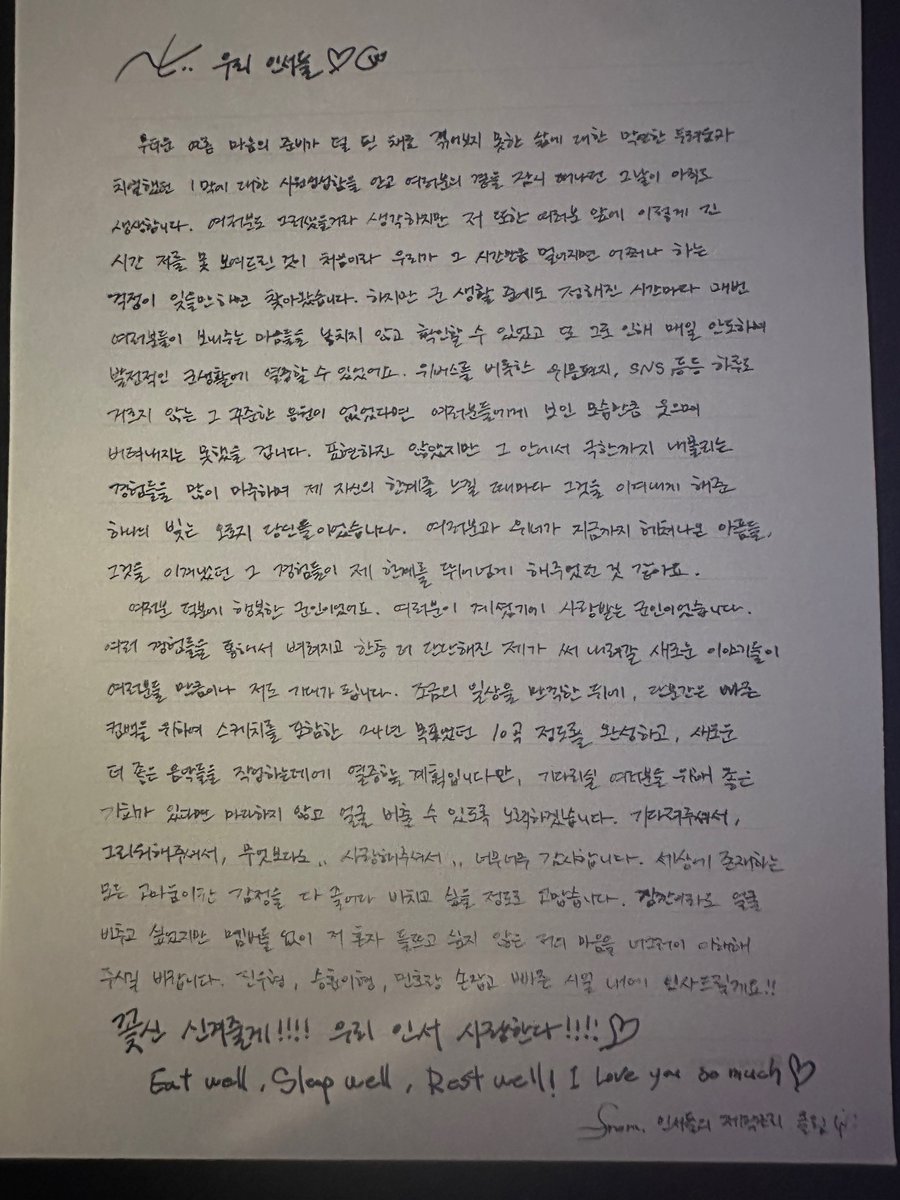 우리 인서들♡
무더운 여름 마음의 준비가 덜 된 채로 겪어보지 못한 삶에 대한 막연한 두려움과
치열했던 1막에 대한 시원섭섭함을 안고 여러분의 곁을 잠시 떠나던 그날이 아직도
생생합니다. 여러분도 그러셨을거라 생각하지만 저 또한 여러분 앞에 이렇게 긴
시간 저를 못 보여드린 것이 처음이라 우리가 그 시간만큼 멀어지면 어쩌나 하는
걱정이 잊을만 하면 찾아왔습니다. 하지만 군 생활 중에도 정해진 시간마다 매번
여러분들이 보내주는 마음들을 놓치지 않고 확인할 수 있었고 또 그로 인해 매일 안도하며
발전적인 군생활에 열중할 수 있었어요. 위버스를 비롯한 위문편지, SNS 등등 하루도
거르지 않는 그 꾸준한 응원이 없었다면 여러분들에게 보인 모습만큼 웃으며
버텨내지는 못했을 겁니다. 표현하진 않았지만 그 안에서 극한까지 내몰리는
경험들을 많이 마주하며 제 자신의 한계를 느낄 때마다 그것을 이겨내게 해준
하나의 빛는 오로지 당신들이었습니다. 여러분과 위너가 지금까지 헤쳐나온 아픔들,
그것을 이겨냈던 그 경험들이 제 한계를 뛰어넘게 해주었던 것 같아요.
여러분 덕분에 행복한 군인이었어요. 여러분이 계셨기에 사랑받는 군인이었습니다.
여러 경험들을 통해서 벼려지고 한층 더 단단해진 제가 써 내려갈 새로운 이야기들이
여러분들 만큼이나 저도 기대가 됩니다. 조금의 일상을 만끽한 뒤에, 당분간은 빠른
컴백을 위하여 스케치를 포함한 24년 목표였던 10곡 정도를 완성하고, 새로운
더 좋은 음악들을 작업하는데에 열중할 계획입니다만, 기다리실 여러분을 위해 좋은
기회가 있다면 마다하지 않고 얼굴 비출 수 있도록 노력하겠습니다. 기다려주셔서,
그리워해주셔서, 무엇보다도,, 사랑해주셔서,, 너무너무 감사합니다. 세상에 존재하는
모든 고마움이란 감정을 다 끌어다 바치고 싶을 정도로 고맙습니다. 잠깐이라도 얼굴
비추고 싶었지만 멤버들 없이 저 혼자 들뜨고 싶지 않은 저의 마음을 너그러이 이해해
주시길 바랍니다. 진우형, 승훈이형, 민호랑 손잡고 빠른 시일 내에 인사드릴게요!!
꽃신 신겨줄게!!!! 우리 인서 사랑한다!!!!♡
Eat well, Sleep well, Rest well! I love you so much♡
From. 인서들의